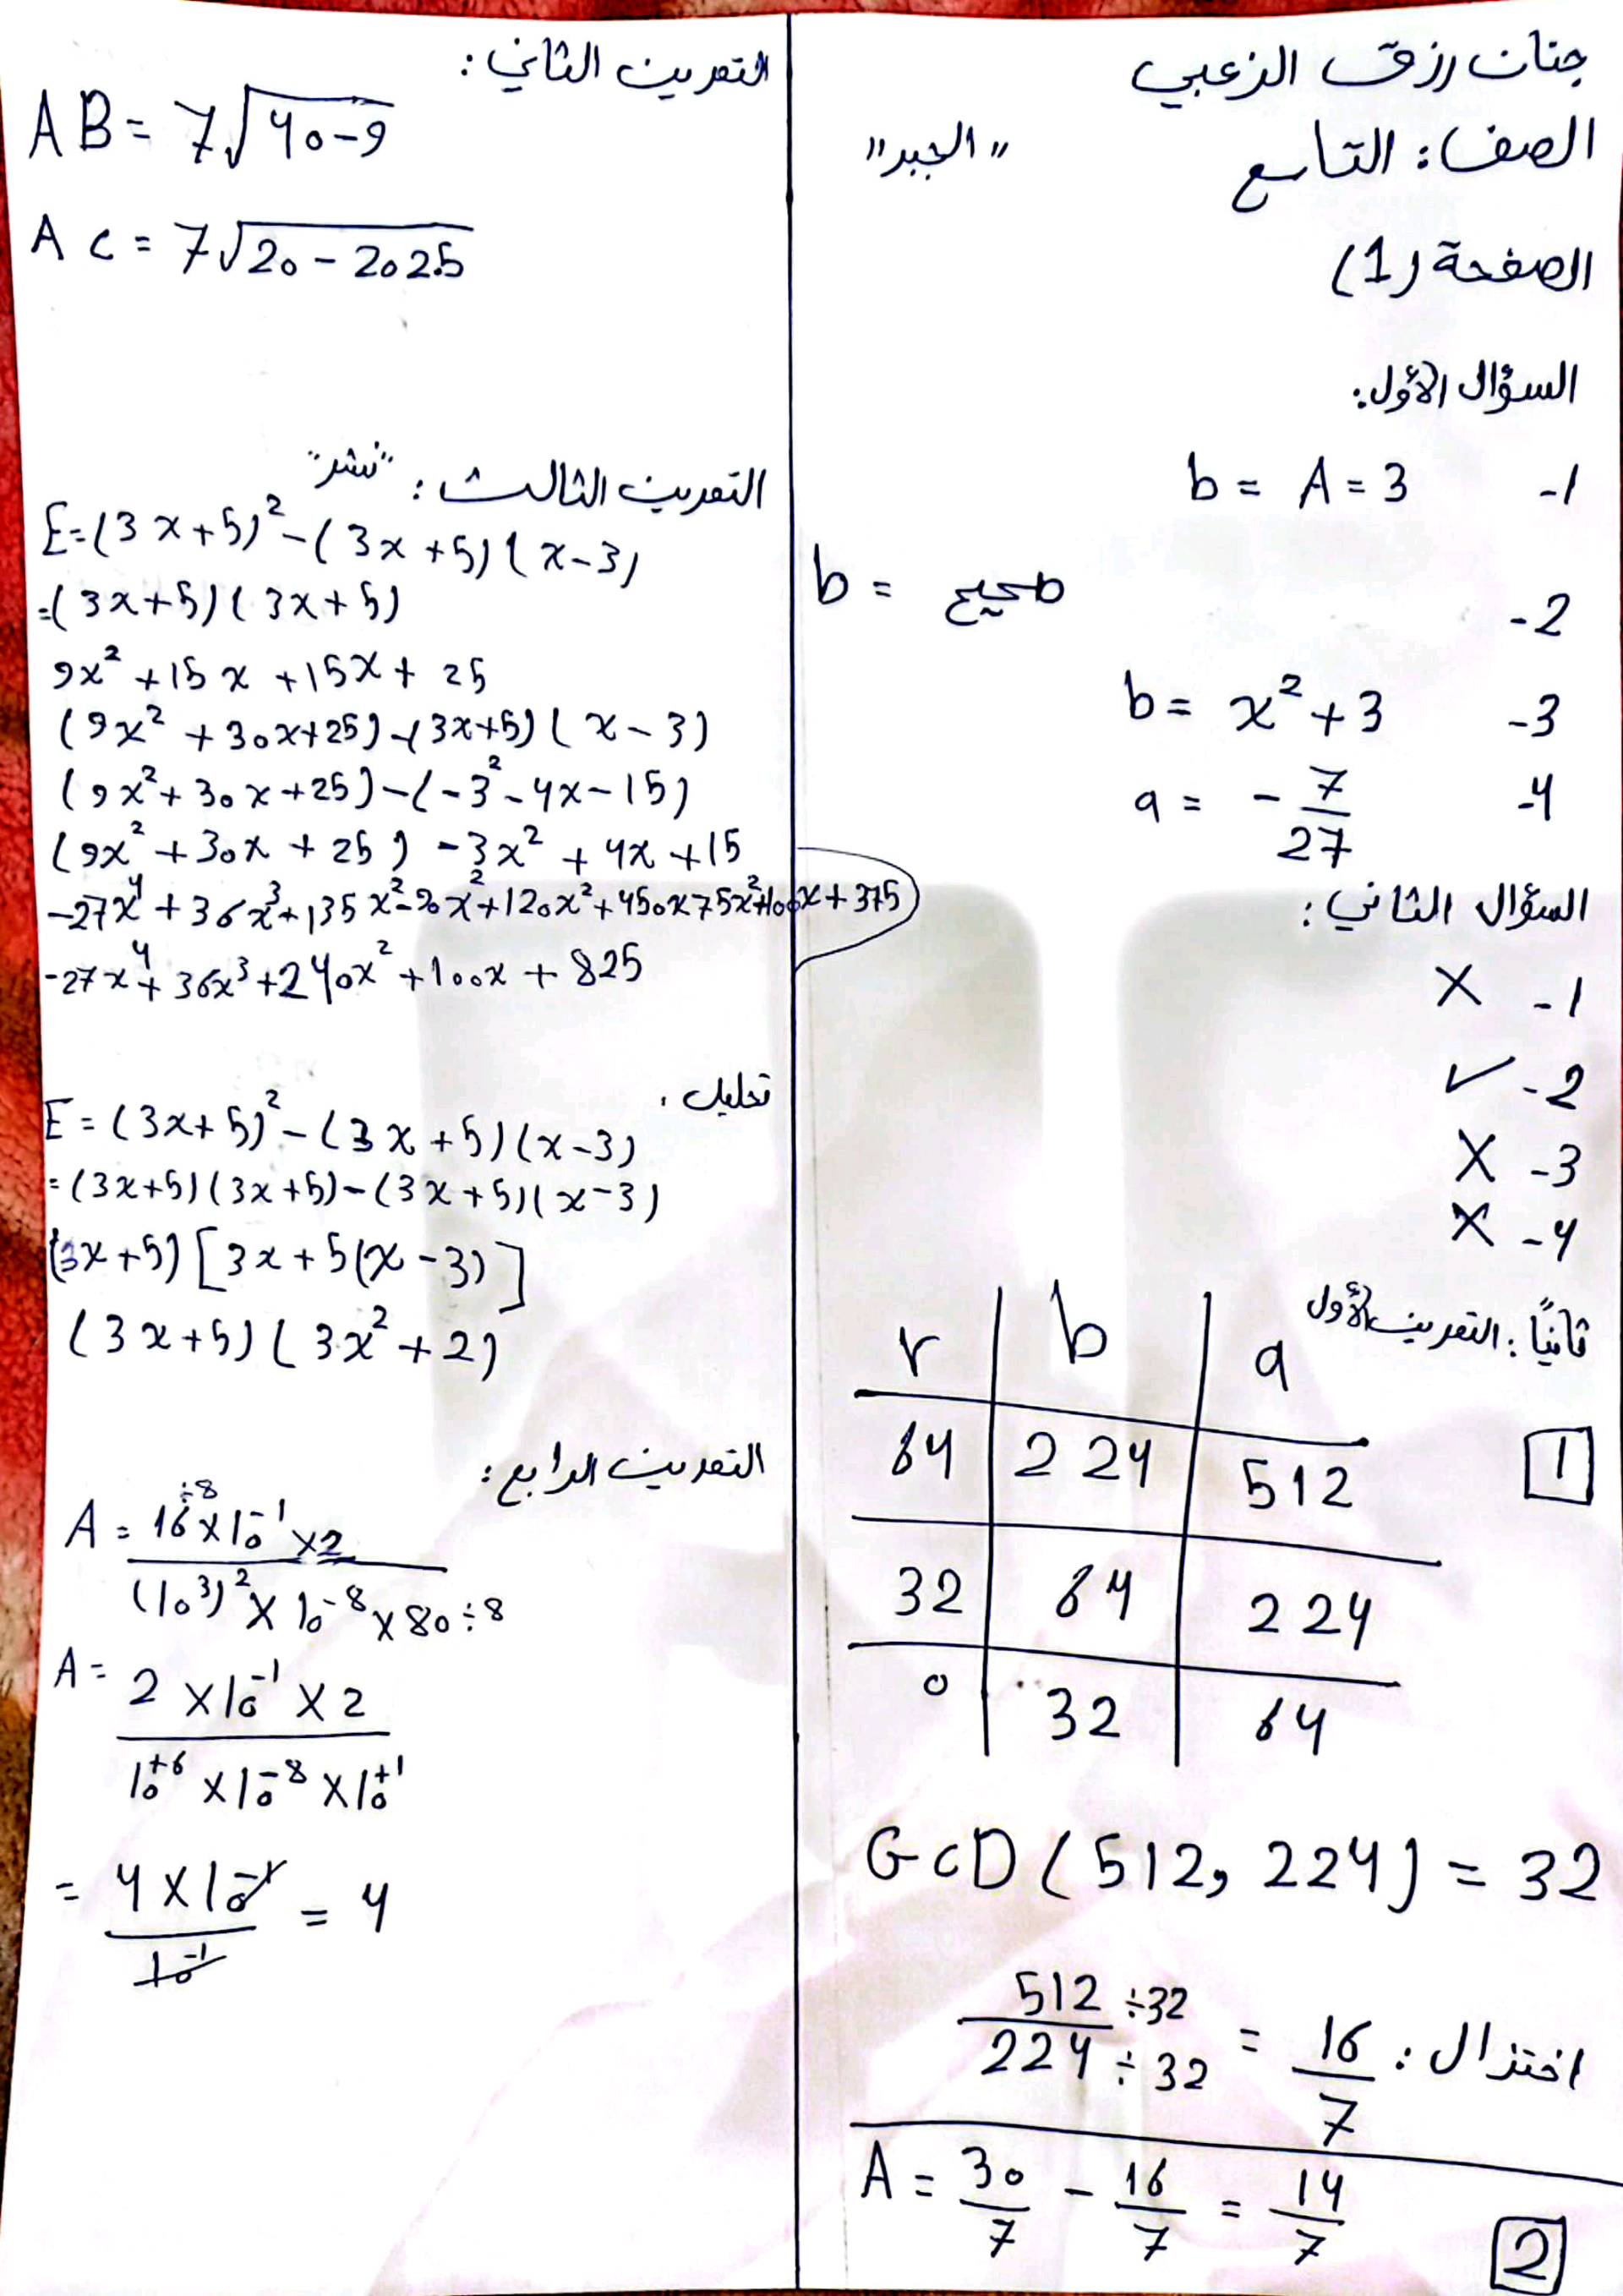 جنان رزق الزعبي
الصف: التاسع
"الجبر"
الصفحة (1)
السؤال الأول:
1- b = A = 3
2- b = صحيح
3- b = x² + 3
4- a = - 7/27
السؤال الثاني:
1- X
2- ✓
3- X
4- X
ثانياً: التمرين الأول
1
a | b | r
512 | 224 | 64
224 | 64 | 32
64 | 32 | 0
GCD (512, 224) = 32
اختزال: 512÷32 / 224÷32 = 16/7
2
A = 30/7 - 16/7 = 14/7
التمرين الثاني:
AB = 7√40-9
AC = 7√20-2025
التمرين الثالث: "نشر"
E = (3x+5)² - (3x+5)(x-3)
= (3x+5)(3x+5)
9x² + 15x + 15x + 25
(9x² + 30x + 25) - (3x+5)(x-3)
(9x² + 30x + 25) - (-3² - 4x - 15)
(9x² + 30x + 25) - 3x² + 4x + 15
-27x⁴ + 36x³ + 135x² - 90x² + 120x² + 450x 75x² + 100x + 375
-27x⁴ + 36x³ + 240x² + 100x + 825
تحليل.
E = (3x+5)² - (3x+5)(x-3)
= (3x+5)(3x+5) - (3x+5)(x-3)
(3x+5)[3x+5(x-3)]
(3x+5)(3x²+2)
التمرين الرابع:
A = 16÷8 × 10⁻¹ × 2 / (10³)² × 10⁻⁸ × 80÷8
A = 2 × 10⁻¹ × 2 / 10⁺⁶ × 10⁻⁸ × 10⁺¹
= 4 × 10⁻¹ / 10⁻¹ = 4